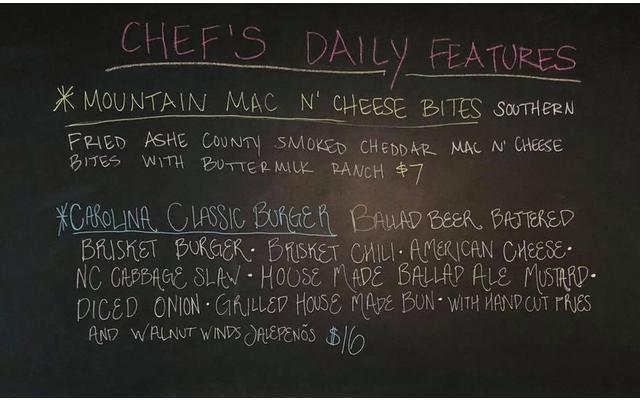 CHEF'S DAILY FEATURES
* MOUNTAIN MAC N' CHEESE BITES SOUTHERN
FRIED ASHE COUNTY SMOKED CHEDDAR MAC N' CHEESE
BITES WITH BUTTERMILK RANCH $7
* CAROLINA CLASSIC BURGER BALLAD BEER BATTERED
BRISKET BURGER • BRISKET CHILI • AMERICAN CHEESE •
NC CABBAGE SLAW • HOUSE MADE BALLAD ALE MUSTARD •
DICED ONION • GRILLED HOUSE MADE BUN • WITH HAND CUT FRIES
AND WALNUT WINDS JALEPEÑOS $16